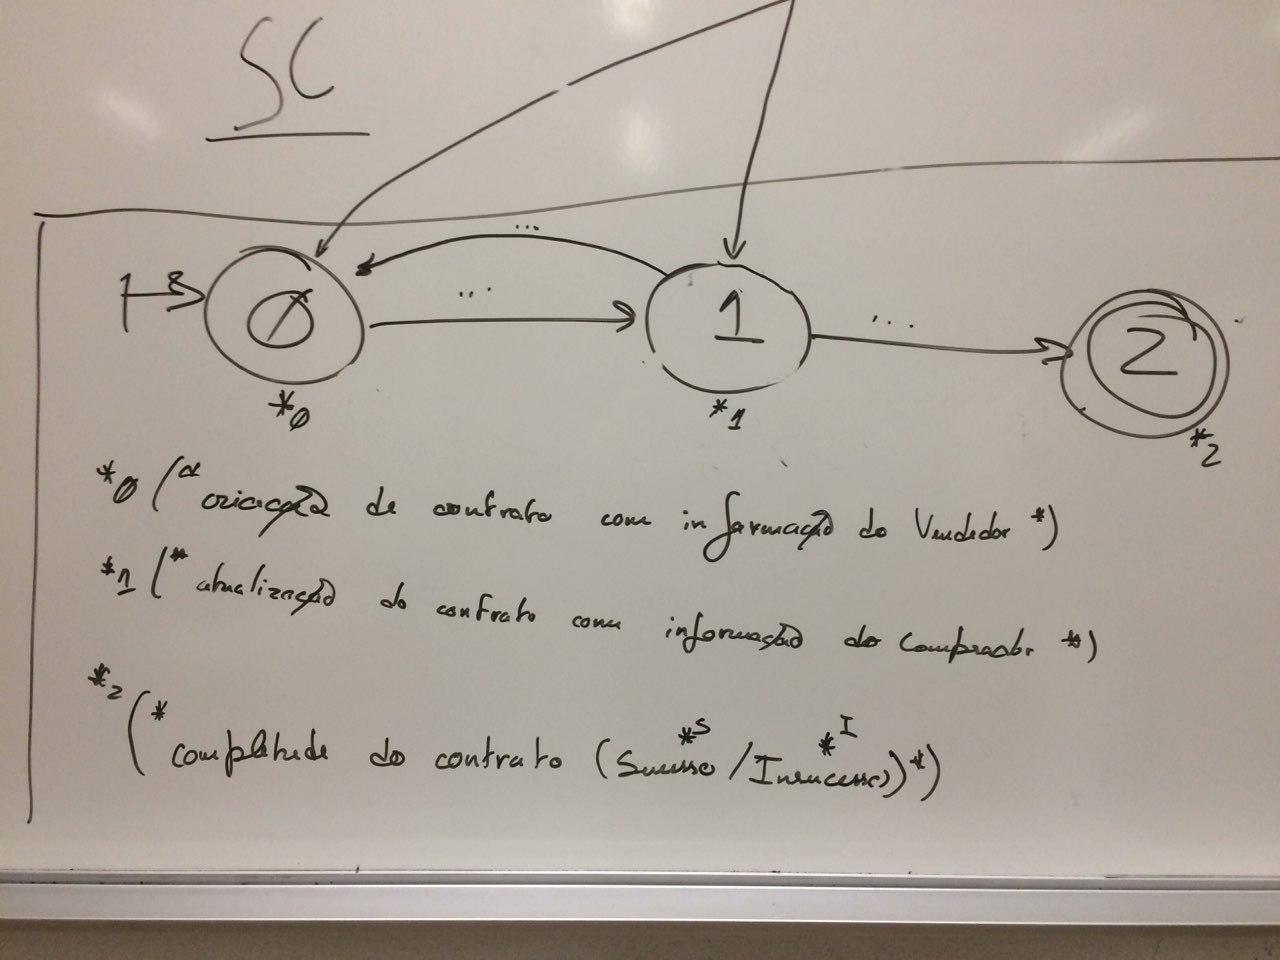 SC
...
...
...
0
1
2
*0
*1
*2
*0 (* criação de contrato com informação do Vendedor *)
*1 (* atualização do contrato com informação do Comprador *)
*2 (* completude do contrato (Sucesso *S / Insucesso *I) *)